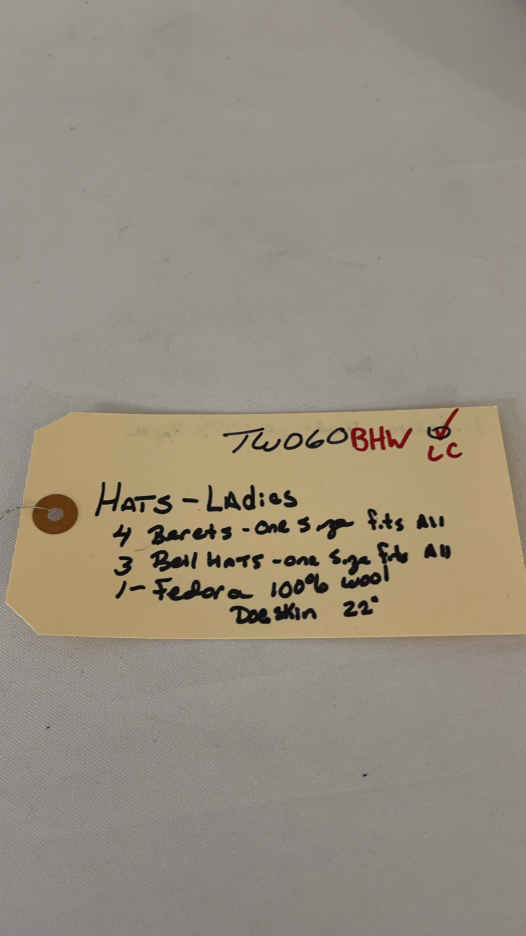 TW060 BHW
LC
HATS - LAdies
4 Berets - one size fits All
3 Bell HATS - one size fits All
1 - Fedora 100% wool
Doeskin 22"